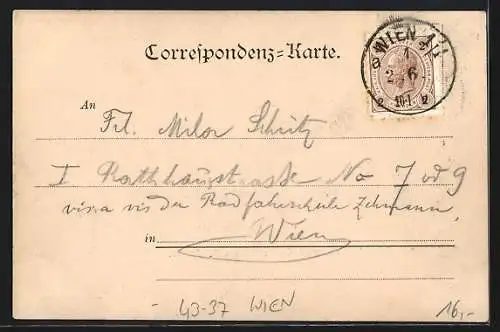 Correspondenz-Karte.
WIEN 1/1
26
6
10-1
2 2
An
Frl. Milor Schütz
I Rathhausstrasse No 7 od 9
vis a vis der Radfahrschule Zehmann
in Wien
43-37 WIEN
16,-